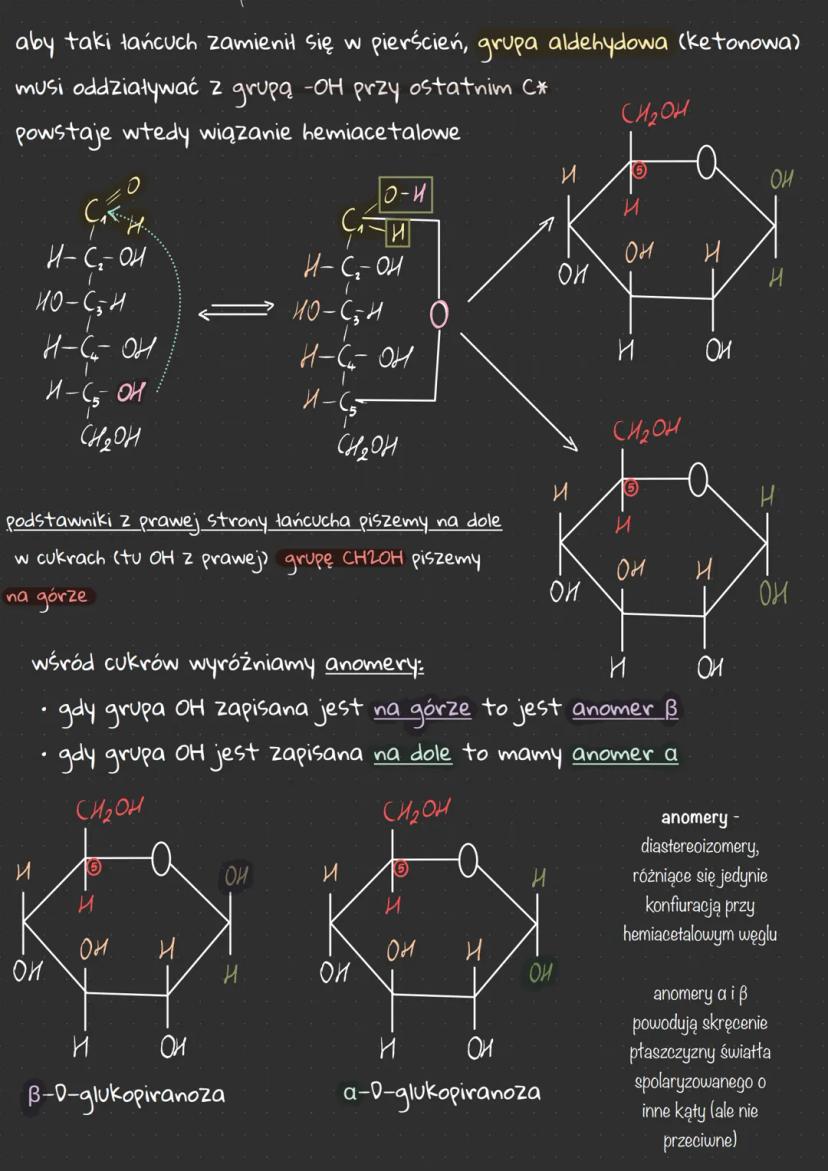 aby taki łańcuch zamienił się w pierścień, grupa aldehydowa (ketonowa)
musi oddziaływać z grupą -OH przy ostatnim C*
powstaje wtedy wiązanie hemiacetalowe
O
C₁
H
H-C₂-OH
HO-C₃-H
H-C₄-OH
H-C₅-OH
CH₂OH
O-H
C₁
H
H-C₂-OH
HO-C₃-H
H-C₄-OH
H-C₅
CH₂OH
O
CH₂OH
H
5
O
OH
H
OH
OH
H
H
H
OH
CH₂OH
H
5
O
H
H
OH
OH
H
OH
H
OH
podstawniki z prawej strony łańcucha piszemy na dole
w cukrach (tu OH z prawej) grupę CH2OH piszemy
na górze
wśród cukrów wyróżniamy anomery:
• gdy grupa OH zapisana jest na górze to jest anomer β
• gdy grupa OH jest zapisana na dole to mamy anomer α
CH₂OH
H
5
O
OH
H
OH
OH
H
H
H
OH
β-D-glukopiranoza
CH₂OH
H
5
O
H
H
OH
OH
H
OH
H
OH
α-D-glukopiranoza
anomery -
diastereoizomery,
różniące się jedynie
konfiuracją przy
hemiacetalowym węglu
anomery α i β
powodują skręcenie
płaszczyzny światła
spolaryzowanego o
inne kąty (ale nie
przeciwne)